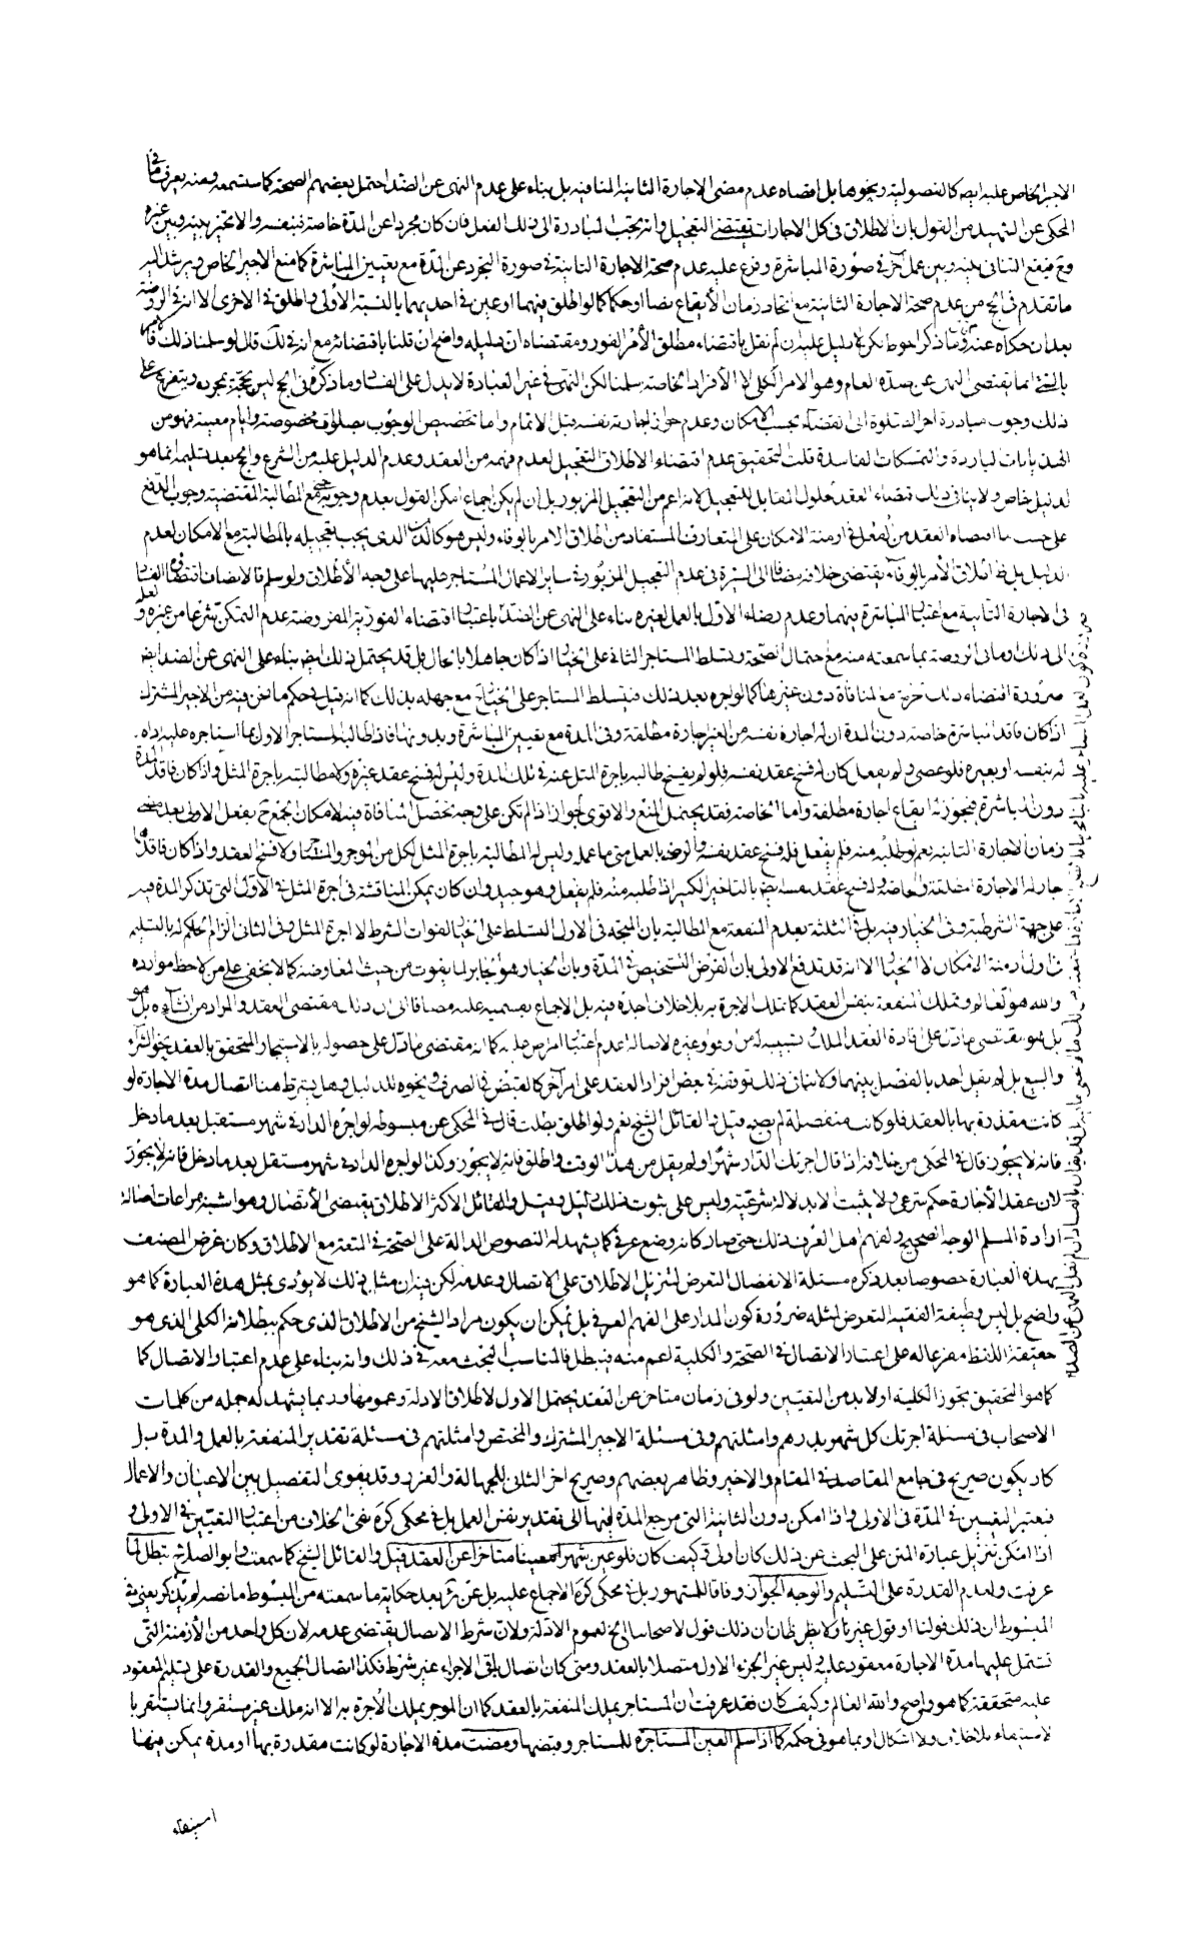 الاجير الخاص عليه ايضا كالفضولية ونحوها بل اقتضاء عدم مضى الاجارة الثانية المنافية بل بناء على عدم النهى عن الضد احتمل بعضهم الصحة كما ستسمعه ومنه يعرف ما فى
المحكى عن الشهيد من القول بان الاطلاق فى كل الاجارات يقتضى التعجيل وانه يجب المبادرة الى ذلك الفعل فان كان مجردا عن المدة خاصة فبنفسه والا تخير بينه وبين غيره
وح فيقع التنافى بينه وبين عمل آخر فى صورة المباشرة وفرع عليه عدم صحة الاجارة الثانية فى صورة التجرد عن المدة مع تعيين المباشرة كما منع الاجير الخاص ويرشد اليه
ما تقدم فى الحج من عدم صحة الاجارة الثانية مع اتحاد زمان الايقاع نصا او حكما كما لو اطلق فيهما او عين فى احديهما بالنسبة الاولى واطلق فى الاخرى الا ان فى الروضة
بعد ان حكاه عنه قال وما ذكر احوط لكن لا دليل عليه ان لم نقل باقتضاء مطلق الامر الفور ومقتضاه ان دليله واضح ان قلنا باقتضائه مع انه فى لك قال لو سلمنا ذلك فالامر
بالشئ انما يقتضى النهى عن ضده العام وهو الامر الكلى لا الافراد الخاصة سلمنا لكن النهى فى غير العبادة لا يدل على الفساد وما ذكره فى الحج ليس بحجة بمجرده ويتفرع على
ذلك وجوب مبادرة اجير الصلوة الى القضاء بحسب الامكان وعدم جواز اجارته نفسه قبل الاتمام واما تخصيص الوجوب بصلوات مخصوصة وايام معينة فهو من
الهذيانات الباردة والتمسكات الفاسدة قلت التحقيق عدم اقتضاء الاطلاق التعجيل لعدم فهمه من العقد وعدم الدليل عليه من الشرع والحج بعد تسليمه انما هو
لدليل خاص ولا ينافى ذلك اقتضاء العقد الحلول المقابل للتأجيل لانه اعم من التعجيل المزبور بل ان لم يكن اجماع امكن القول بعدم وجوبه حتى مع المطالبة المقتضية وجوب الدفع
على حسب ما اقتضاه العقد من الفعل فى ازمنة الامكان على المتعارف المستفاد من اطلاق الامر بالوفاء وليس هو كالدين الذى يجب تعجيله بالمطالبة مع الامكان لعدم
الدليل بل اطلاق الامر بالوفاء يقتضى خلافه مضافا الى السيرة فى عدم التعجيل المزبور فى ساير الاعمال المستاجر عليها على وجه الاطلاق ولو سلم فالانصاف اقتضاؤه الفساد
فى الاجارة الثانية مع اعتبار المباشرة فيهما وعدم رضاء الاول بالعمل لغيره بناء على النهى عن الضد باعتبار اقتضاء الفورية المفروضة عدم التمكن شرعا من غيره ولعله
الى ذلك اومأ فى الروضة بما سمعته منه مع احتمال الصحة ويتسلط المستاجر الثانى على الخيار اذا كان جاهلا بالحال بل قد يحتمل ذلك ايضا بناء على النهى عن الضد ايضا
ضرورة اقتضاء ذلك حرمته مع المنافاة دون غيرها كما لو اجره بعد ذلك فيتسلط المستاجر على الخيار ح مع جهله بذلك كما انه قيل فى حكم ما نحن فيه من الاجير المشترك
اذا كان فاقد المباشرة خاصة دون المدة ان له اجارة نفسه من الغير اجارة مطلقة وفى المدة مع تعيين المباشرة وبدونها فاذا طالبه المستاجر الاول بما استاجره عليه اداه
له بنفسه او بغيره فلو عصى ولم يفعل كان له فسخ عقد نفسه فلو لم يفسخ طالبه باجرة المثل عنه فى تلك المدة وليس له فسخ عقد غيره ولا مطالبته باجرة المثل واذا كان فاقد المدة
دون المباشرة فيجوز له ايقاع اجارة مطلقة واما الخاصة فقد يحتمل المنع والاقوى الجواز اذا لم تكن على وجه تحصل المنافاة فيه لامكان الجمع ح بفعل الاولى بعد مضى
زمان الاجارة الثانية نعم لو طلبه منه فلم يفعل فله فسخ عقد نفسه والرضا بالعمل متى ما عمله وليس له المطالبة باجرة المثل لكل من الموجر والمستاجر ولا فسخ العقد واذا كان فاقدا لهما
جاز له الاجارة المطلقة والخاصة وله فسخ عقد نفسه ايضا بالتاخير الكثير اذا طلبه منه فلم يفعل وهو جيد وان كان يمكن المناقشة فى اجرة المثل فى الاول التى تذكر المدة فيه
على جهة الشرطية وفى الخيار فيه بل فى الثلثة بعدم المنفعة مع المطالبة بان المتجه فى الاول التسلط على الخيار لفوات الشرط لا اجرة المثل وفى الثانى الزام الحاكم له بالتسليم
فى اول ازمنة الامكان لا الخيار الا انه قد تدفع الاولى بان الفرض التشخيص فى المدة وبان الخيار هو الجابر لما يفوت من حيث المعاوضة كما لا يخفى على من لاحظ موارده
والله هو العالم وتملك المنفعة بنفس العقد كما تملك الاجرة به بلا خلاف اجده فيه بل الاجماع بقسميه عليه مضافا الى ان ذلك مقتضى العقد والمراد من انشاءه بل هو
بل هو مقتضى ما دل على افادة العقد الملك وتسبيبه له من اوفوا وغيره لاصالة عدم اعتبار امر من عليه كما انه مقتضى ما دل على حصوله بالاستيجار المتحقق بالعقد نحو الشراء
والبيع بل لم يقل احد بالفصل بينهما ولا ينافى ذلك توقفه فى بعض افراد العقد على امر آخر كالقبض فى الصرف ونحوه للدليل وهل يشترط هنا اتصال مدة الاجارة لو
كانت مقدرة بها بالعقد فلو كانت منفصلة لم يصح قيل والقائل الشيخ نعم ولو اطلق بطلت قال فى المحكى عن مبسوطه لو اجره الدار فى شهر مستقبل بعد ما دخل
فانه لا يجوز قال فى المحكى من خلافه اذا قال اجرتك الدار شهرا ولم يقل من هذا الوقت واطلق فانه لا يجوز وكذا لو اجره الدار فى شهر مستقبل بعد ما دخل فانه لا يجوز
لان عقد الاجارة حكم شرعى ولا يثبت الا بدلالة شرعية وليس على ثبوت ذلك دليل وقيل والقائل الاكثر الاطلاق يقتضى الاتصال وهو اشبه مراعات لاصالة
ارادة المسلم الوجه الصحيح ولفهم اهل العرف ذلك حتى صار كانه وضع عرفى كما يشهد له النصوص الدالة على الصحة فى المتعة مع الاطلاق وكان غرض المصنف
بهذه العبارة خصوصا بعد ذكره مسئلة الانفصال التعرض لتنزيل الاطلاق على الاتصال وعدمه لكن فيه ان مثل ذلك لا يؤدى بمثل هذه العبارة كما هو
واضح بل ليس وظيفة الفقيه التعرض لمثله ضرورة كون المدار على الفهم العرفى بل يمكن ان يكون مراد الشيخ من الاطلاق الذى حكم ببطلانه الكلى الذى هو
حقيقة اللفظ مفرعا له على اعتبار الاتصال فى الصحة والكلية اعم منه فيبطل فالمناسب البحث معه فى ذلك وانه بناء على عدم اعتبار الاتصال كما
كما هو التحقيق يجوز الكلية او لا بد من التعيين ولو فى زمان متاخر عن العقد يحتمل الاول لاطلاق الادلة وعمومها وربما يشهد له جملة من كلمات
الاصحاب فى مسئلة اجرتك كل شهر بدرهم وامثلتهم وفى مسئلة الاجير المشترك والمختص وامثلتهم فى مسئلة تقدير المنفعة بالعمل والمدة بل
كاد يكون صريح فى جامع المقاصد فى المقام والاخير وظاهر بعضهم وصريح اخر الثانى للجهالة والغرر وقد يقوى التفصيل بين الاعيان والاعمال
فيعتبر التعيين فى المدة فى الاولى واذا امكن دون الثانية التى مرجع المدة فيها الى تقدير نفس العمل بل فى محكى كره نفى الخلاف من اعتبار التعيين فى الاولى و
اذا امكن تنزيل عبارة المتن على البحث عن ذلك كان اولى وكيف كان فلو عين شهرا معينا متاخرا عن العقد قيل والقائل الشيخ كما سمعت وابو الصلاح تبطل لما
عرفت ولعدم القدرة على التسليم والوجه الجواز وفاقا للمشهور بل فى محكى كره الاجماع عليه بل عن ئر بعد حكاية ما سمعته من المبسوط ما نصه لم يذكر يعنى فى
المبسوط ان ذلك قولنا او قول غيرنا ولا يظن ظان ان ذلك قول لاصحابنا الخ لعموم الادلة ولان شرط الاتصال يقتضى عدمه لان كل واحد من الازمنة التى
تشتمل عليها مدة الاجارة معقود عليه وليس غير الجزء الاول متصلا بالعقد ومتى كان اتصال باقى الاجزاء غير شرط فكذا اتصال الجميع والقدرة على تسليم المعقود
عليه متحققة كما هو واضح والله العالم وكيف كان فقد عرفت ان المستاجر يملك المنفعة بالعقد كما ان الموجر يملك الاجرة به الا انه ملك غير مستقر وانما يستقر با
لاستيفاء بلا خلاف ولا اشكال او بما هو فى حكمه كما اذا سلم العين المستاجرة للمستاجر وقبضها ومضت مدة الاجارة لو كانت مقدرة بها او مدة يمكن فيها
استيفاء